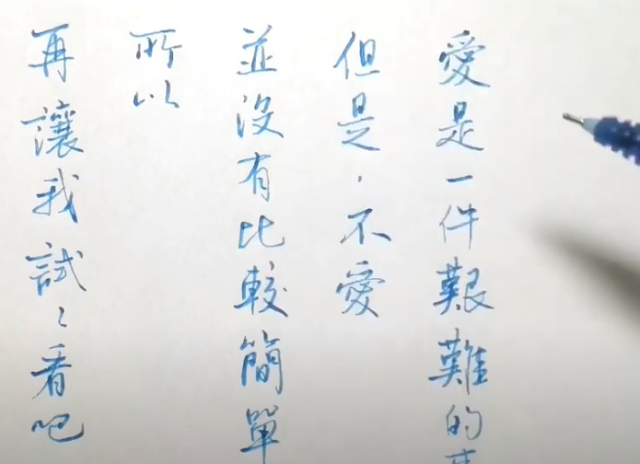 愛是一件艱難的
但是,不愛
並沒有比較簡單
所以
再讓我試試看吧